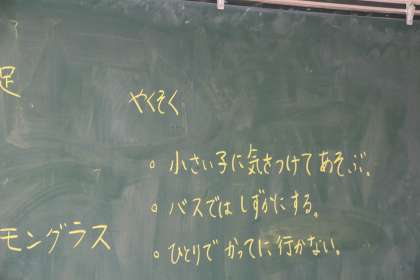 足
やくそく
。小さい子に気をつけてあそぶ。
。バスではしずかにする。
。ひとりでかってに行かない。
モングラス